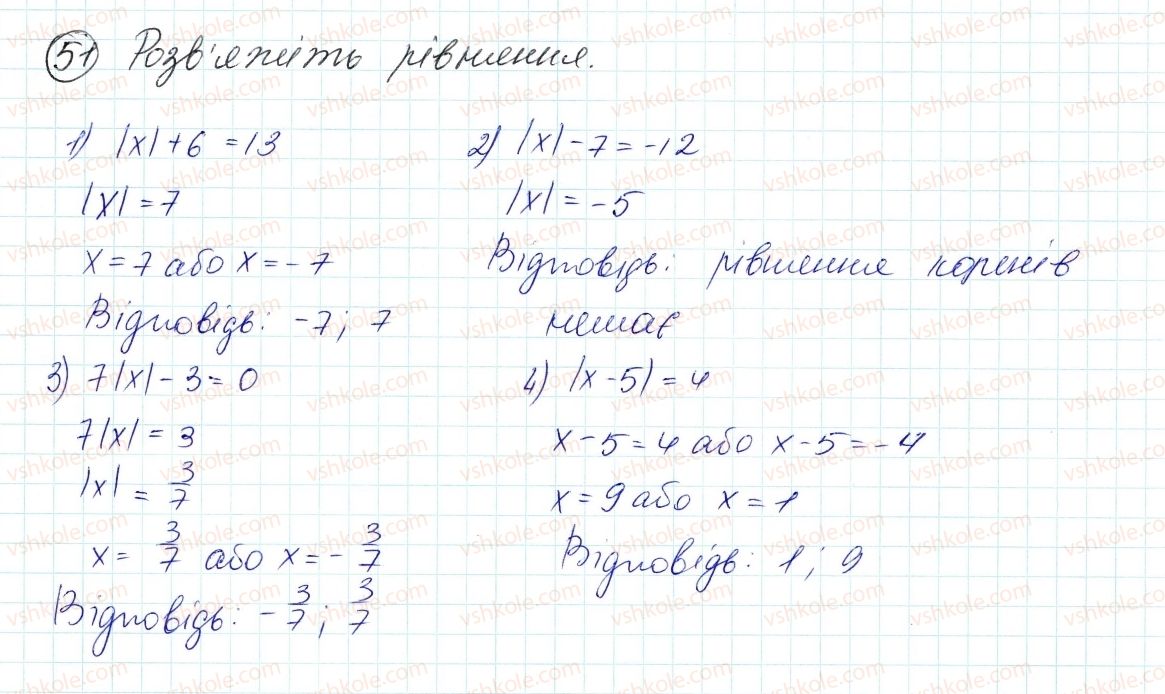 51 Розв'яжіть рівняння.
1) |x| + 6 = 13
|x| = 7
x = 7 або x = - 7
Відповідь: -7; 7
2) |x| - 7 = -12
|x| = -5
Відповідь: рівняння коренів
немає
3) 7|x| - 3 = 0
7|x| = 3
|x| = 3/7
x = 3/7 або x = - 3/7
Відповідь: - 3/7; 3/7
4) |x - 5| = 4
x - 5 = 4 або x - 5 = - 4
x = 9 або x = 1
Відповідь: 1; 9
vshkole.com